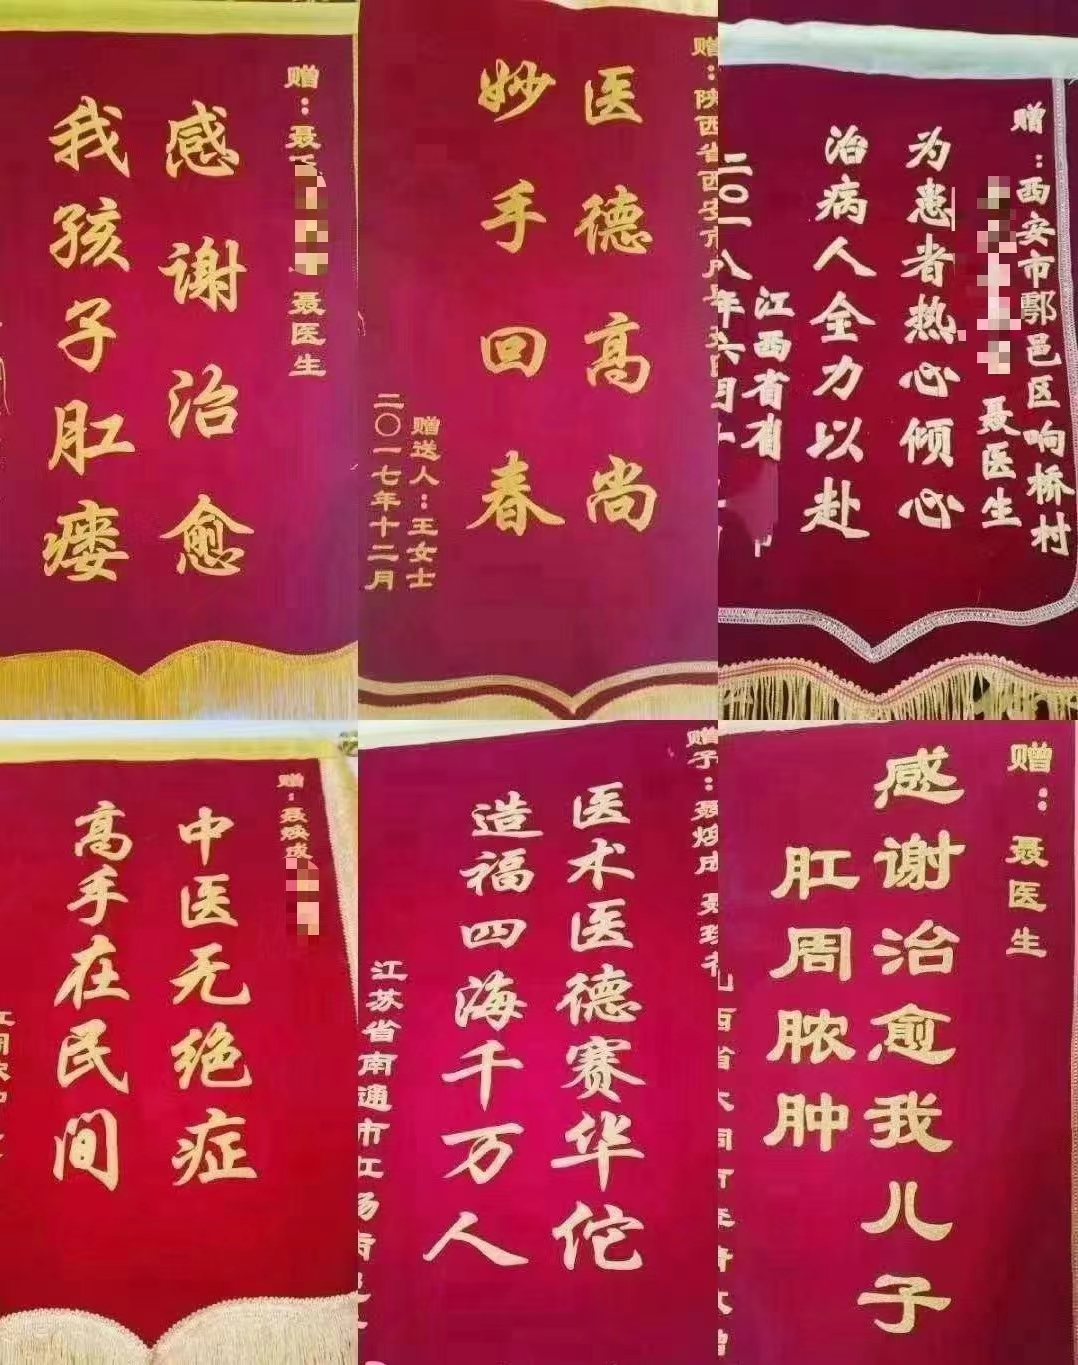 赠：聂
聂医生
感谢治愈
我孩子肛瘘
赠：陕西省西安市
医德高尚
妙手回春
赠送人：王女士
二〇一七年十二月
赠：西安市鄠邑区响桥村
聂医生
为患者热心倾心
治病人全力以赴
江西省
二〇一八年六月
赠：聂焕成
中医无绝症
高手在民间
赠予：聂焕成
医术医德赛华佗
造福四海千万人
江苏省南通市
赠：聂医生
感谢治愈我儿子
肛周脓肿
西省大同市